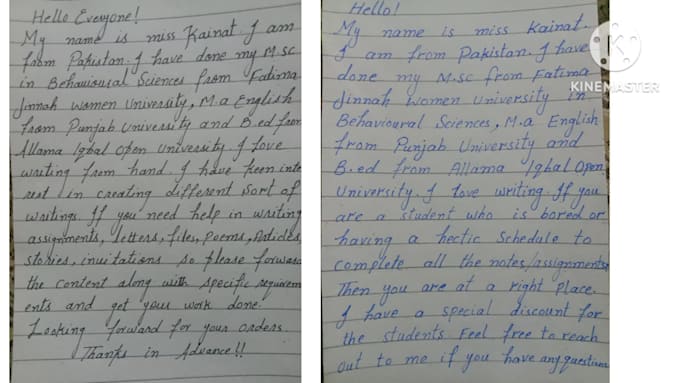 Hello Everyone!
My name is miss Kainat. I am
from Pakistan. I have done my M.sc
in Behavioural Sciences from Fatima
Jinnah Women University, M.a English
from Punjab University and B.ed from
Allama Iqbal Open University. I Love
writing from hand. I have keen inte
rest in creating different sort of
writings. If you need help in writing
assignments, letters, files, poems, Articles,
stories, invitations so please forward
the content along with specific requirem
ents and get your work done.
Looking forward for your orders.
Thanks in Advance!!
Hello!
My name is miss Kainat.
I am from Pakistan. I have
done my M.sc from Fatima
Jinnah Women University in
Behavioural Sciences, M.a English
from Punjab University and
B.ed from Allama Iqbal Open
University. I Love writing. If you
are a student who is bored or
having a hectic Schedule to
complete all the notes/assignments
Then you are at a right place.
I have a special discount for
the students. Feel free to reach
out to me if you have any questions
KINEMASTER